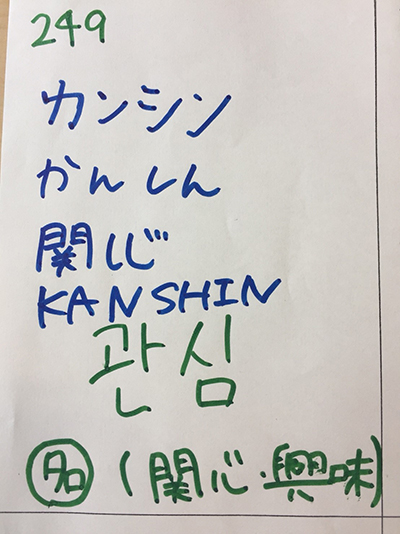 249
カンシン
かんしん
関心
KANSHIN
관심
名 (関心・興味)